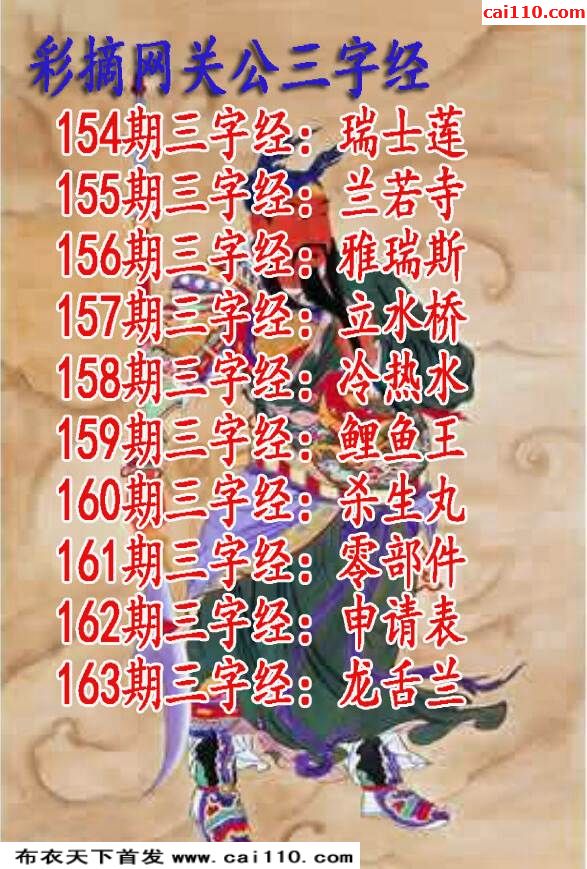 cai110.com
彩摘网关公三字经
154期三字经：瑞士莲
155期三字经：兰若寺
156期三字经：雅瑞斯
157期三字经：立水桥
158期三字经：冷热水
159期三字经：鲤鱼王
160期三字经：杀生丸
161期三字经：零部件
162期三字经：申请表
163期三字经：龙舌兰
布衣天下首发 www.cai110.com